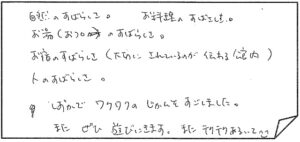 自然のすばらしさ。 お料理のすばらしさ。
お湯(お)の のすばらしさ。
お宿のすばらしさ(大切に されているのが 伝わる 館内)
人のすばらしさ。
しずかで ワクワクの じかんを すごしました。
また ぜひ 遊びにきます。また テクテクあるいて